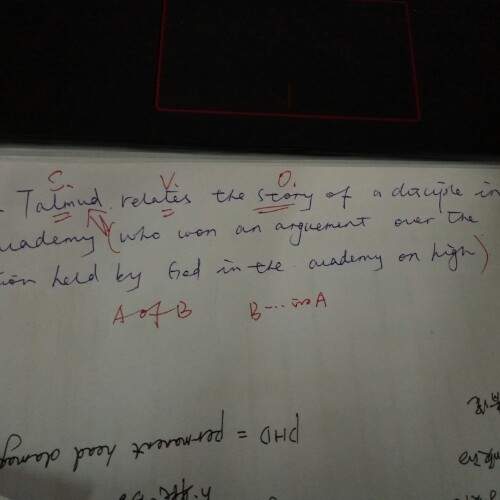 S. V. O.
Talmud relates the story of a disciple in
academy (who won an arguement over the
held by God in the academy on high)
A of B B ... A
PHD = permanent head damag